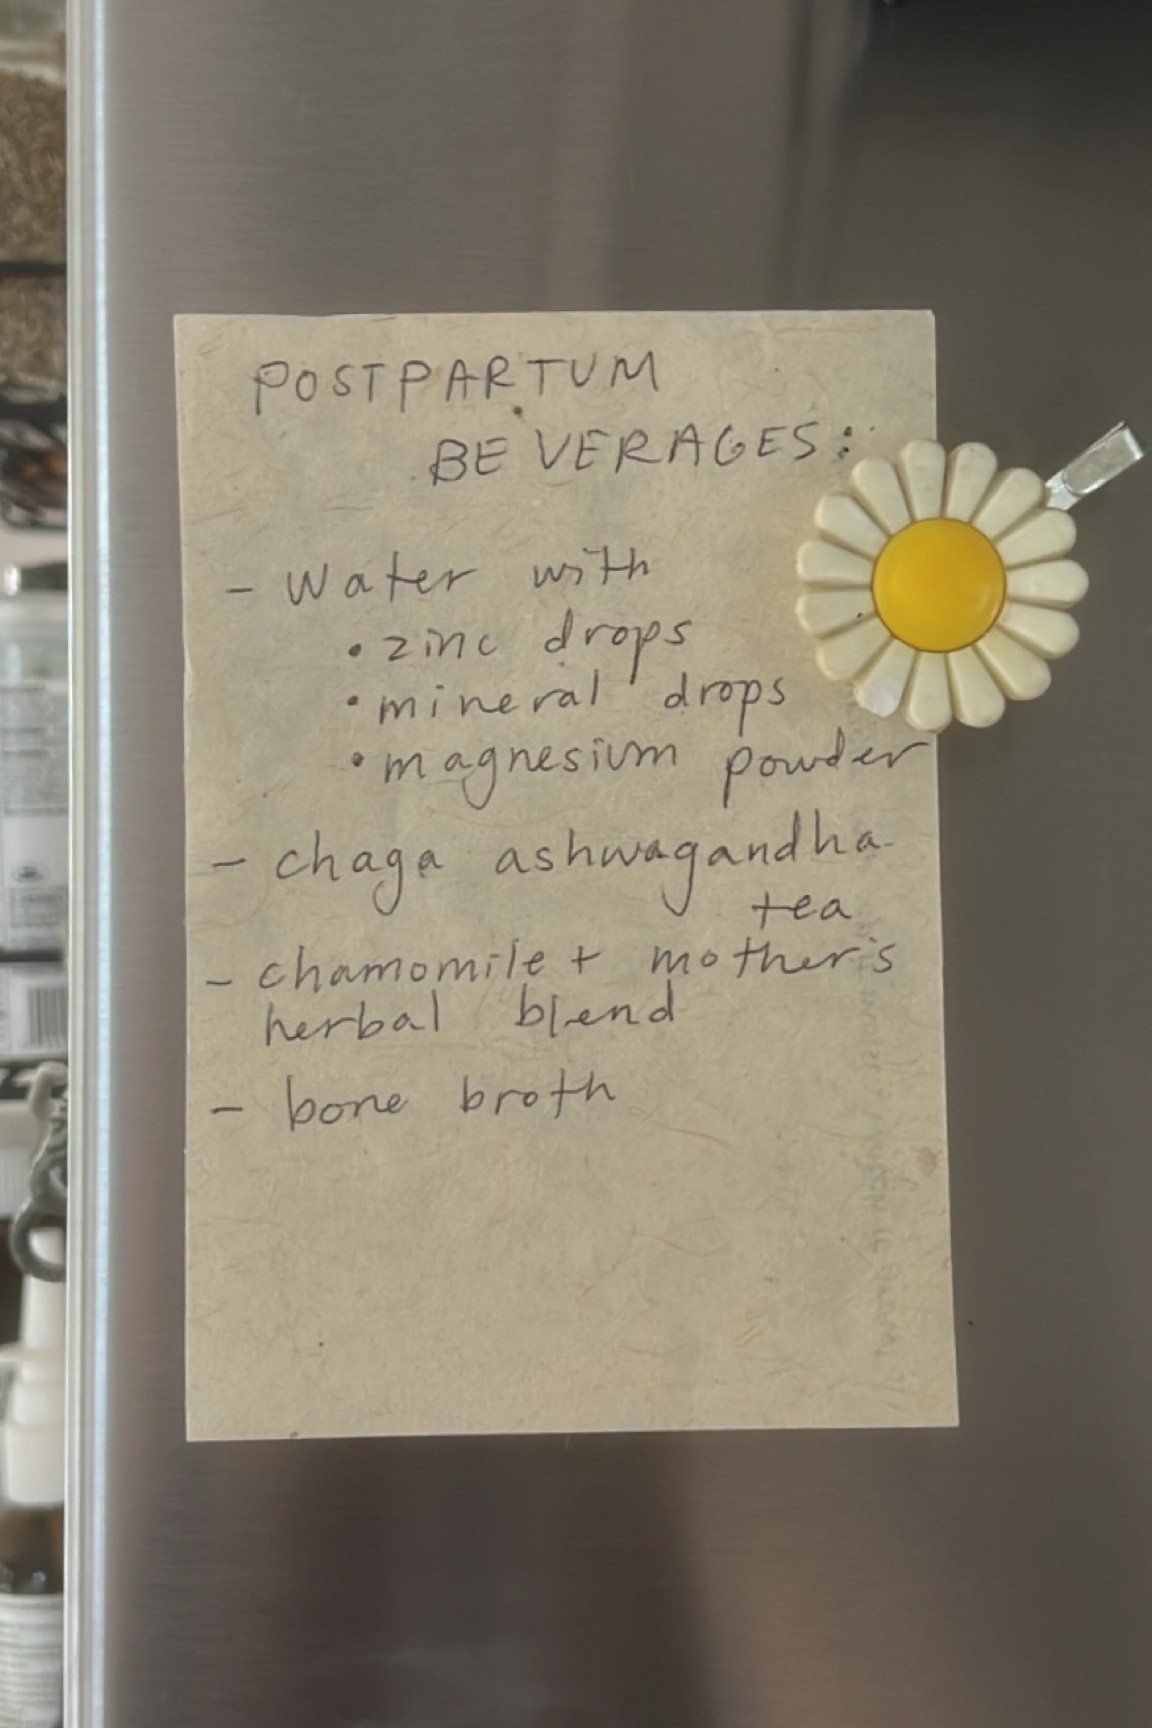 POSTPARTUM
BEVERAGES:
- Water with
• zinc drops
• mineral drops
• magnesium powder
- chaga ashwagandha
tea
- chamomile + mother's
herbal blend
- bone broth